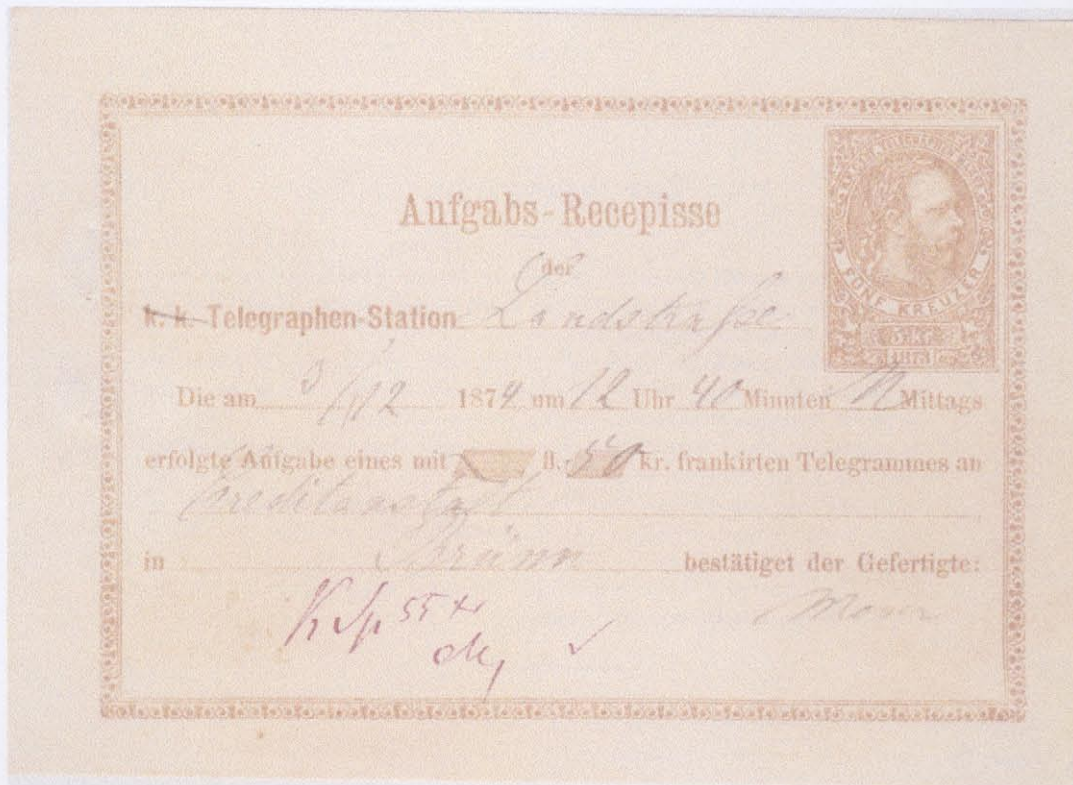 Aufgabs-Recepisse
der
k. k. Telegraphen-Station Landstraße
FÜNF KREUZER
5 Kr
1873
Die am 3/12 1874 um 12 Uhr 40 Minuten M Mittags
erfolgte Aufgabe eines mit fl. 50 kr. frankirten Telegrammes an
Kreditanstalt
in Brünn bestätiget der Gefertigte:
55 kr